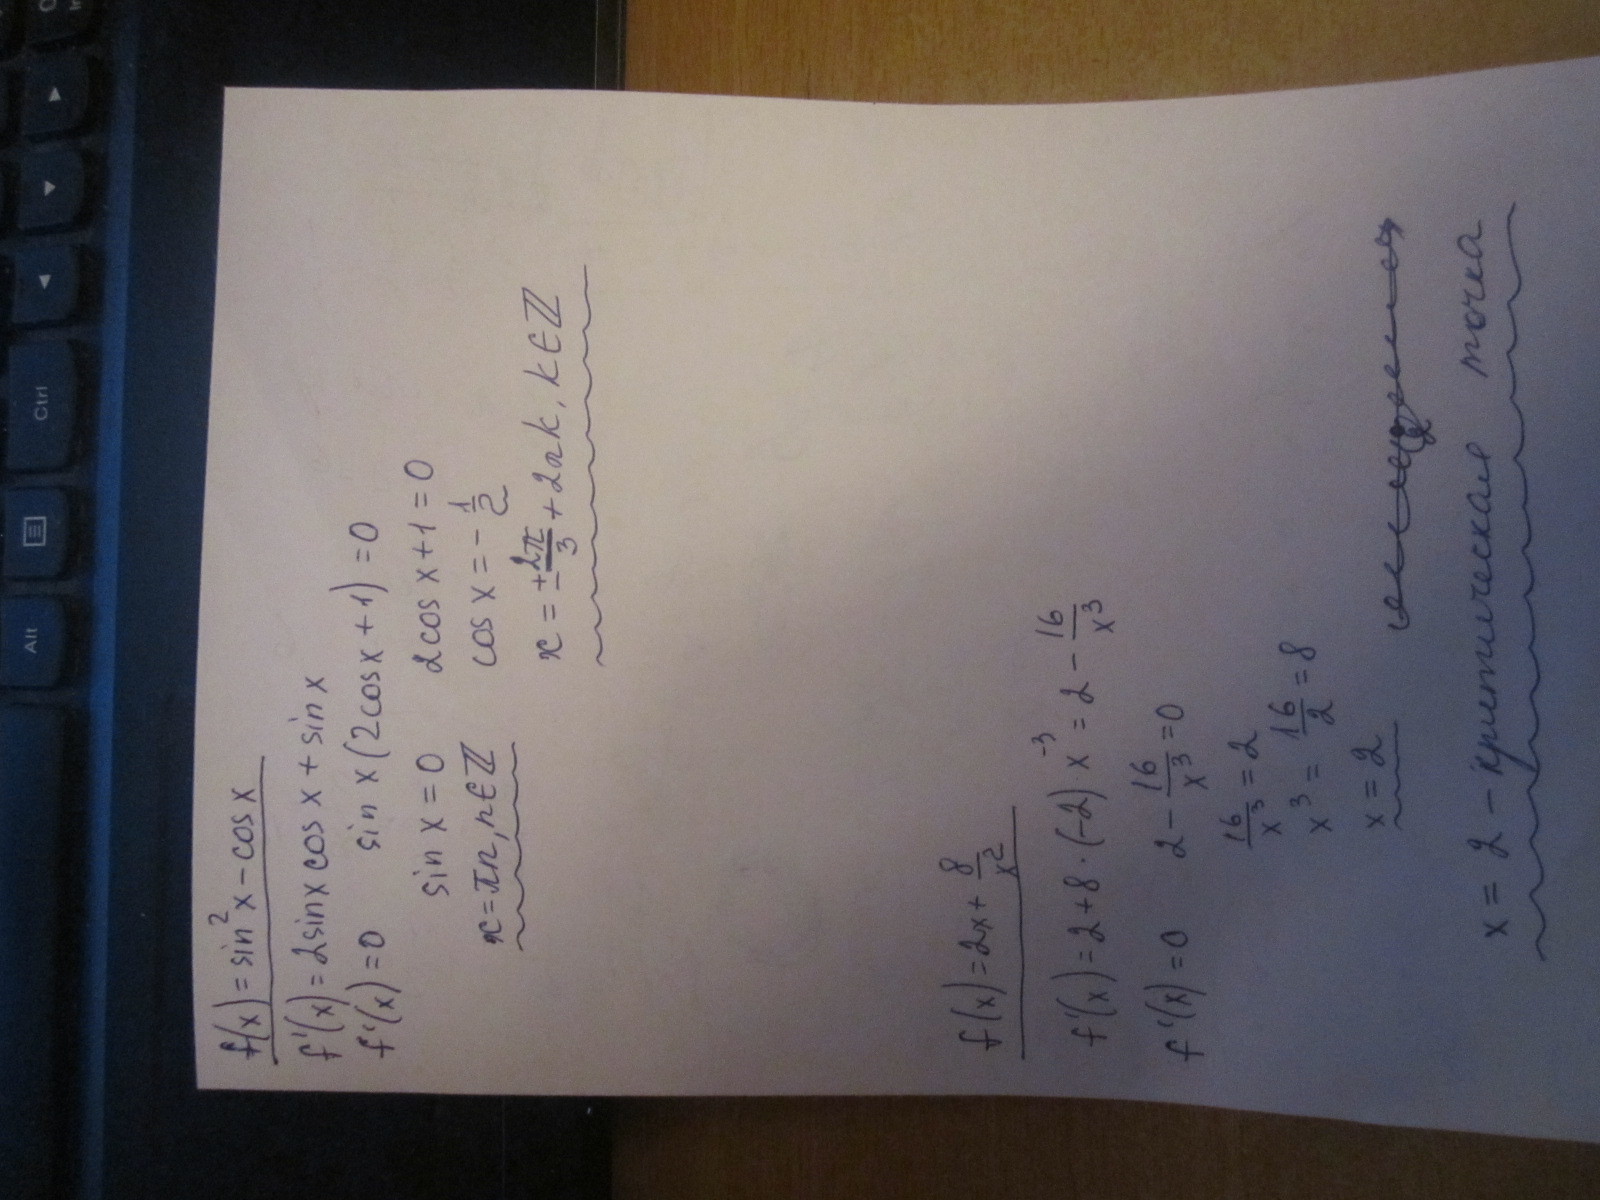 f(x)=sin²x-cosx
f'(x)=2sinxcosx+sinx
f'(x)=0 sinx(2cosx+1)=0
sinx=0 2cosx+1=0
x=πn, n∈ℤ cosx=-1/2
x=±2π/3+2πk, k∈ℤ
f(x)=2x+8/x²
f'(x)=2+8·(-2)·x⁻³=2-16/x³
f'(x)=0 2-16/x³=0
16/x³=2
x³=16/2=8
x=2
x=2-критическая точка
Alt
Ctrl